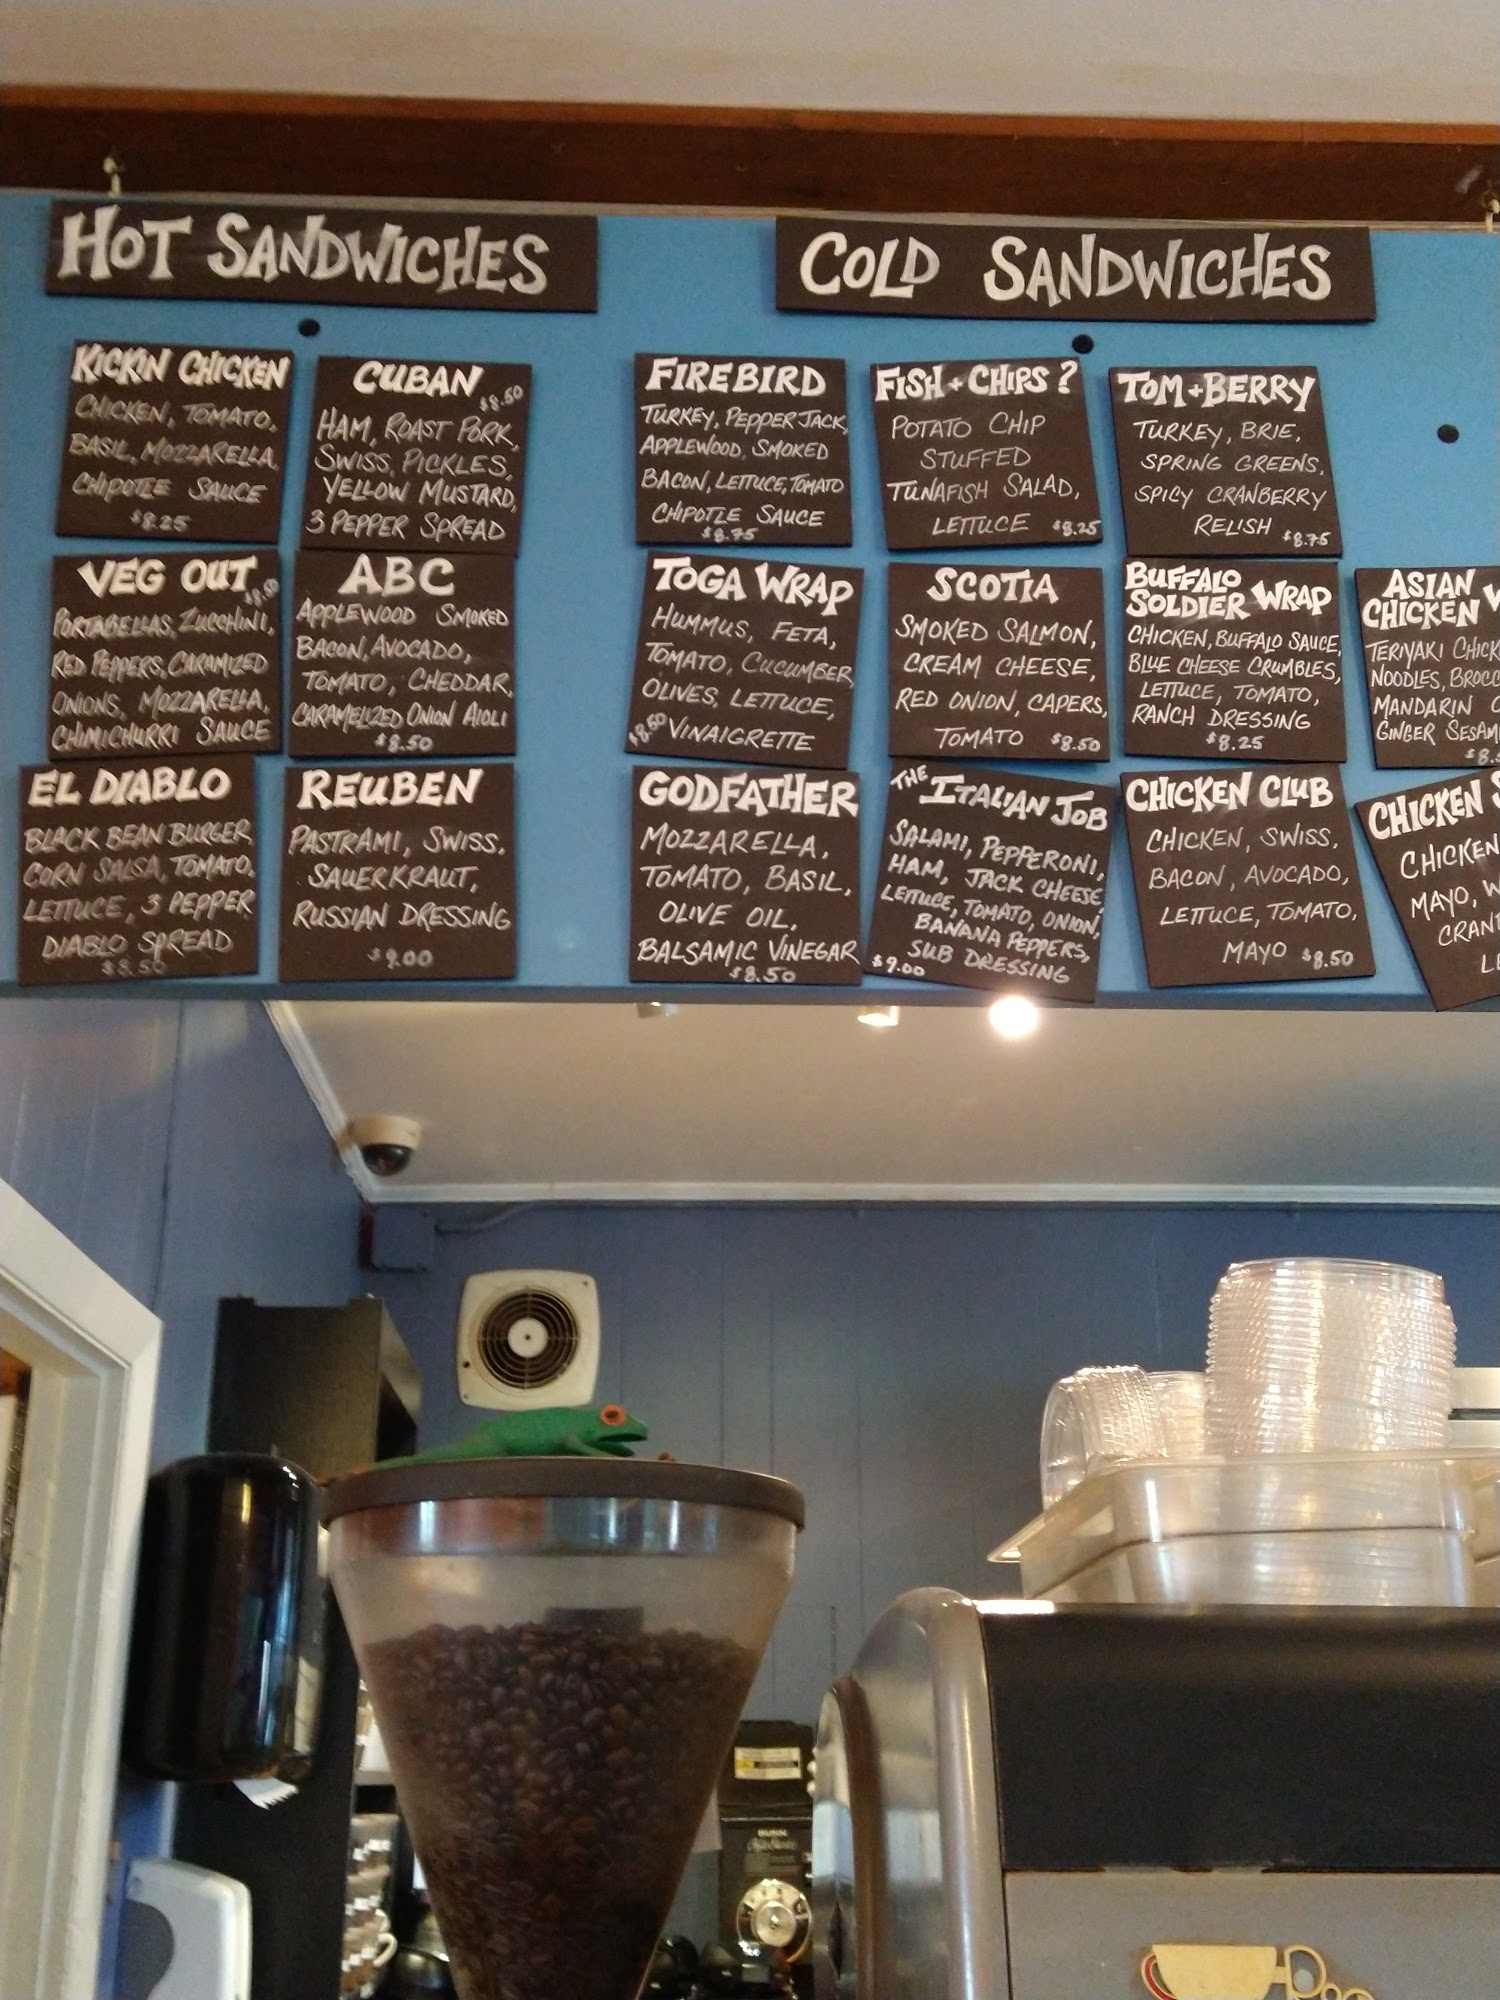 HOT SANDWICHES
KICKIN CHICKEN
CHICKEN, TOMATO,
BASIL, MOZZARELLA,
CHIPOTLE SAUCE
$8.25
CUBAN
$8.50
HAM, ROAST PORK,
SWISS, PICKLES,
YELLOW MUSTARD,
3 PEPPER SPREAD
VEG OUT
$8.50
PORTABELLAS, ZUCCHINI,
RED PEPPERS, CARAMIZED
ONIONS, MOZZARELLA,
CHIMICHURRI SAUCE
ABC
APPLEWOOD SMOKED
BACON, AVOCADO,
TOMATO, CHEDDAR,
CARAMELIZED ONION AIOLI
$8.50
EL DIABLO
BLACK BEAN BURGER
CORN SALSA, TOMATO,
LETTUCE, 3 PEPPER
DIABLO SPREAD
$8.50
REUBEN
PASTRAMI, SWISS,
SAUERKRAUT,
RUSSIAN DRESSING
$9.00
COLD SANDWICHES
FIREBIRD
TURKEY, PEPPER JACK,
APPLEWOOD, SMOKED
BACON, LETTUCE, TOMATO
CHIPOTLE SAUCE
$8.75
FISH + CHIPS?
POTATO CHIP
STUFFED
TUNAFISH SALAD,
LETTUCE $8.25
TOM + BERRY
TURKEY, BRIE,
SPRING GREENS,
SPICY CRANBERRY
RELISH $8.75
TOGA WRAP
HUMMUS, FETA,
TOMATO, CUCUMBER,
OLIVES, LETTUCE,
$8.50 VINAIGRETTE
SCOTIA
SMOKED SALMON,
CREAM CHEESE,
RED ONION, CAPERS,
TOMATO $8.50
BUFFALO
SOLDIER WRAP
CHICKEN, BUFFALO SAUCE,
BLUE CHEESE CRUMBLES,
LETTUCE, TOMATO,
RANCH DRESSING
$8.25
ASIAN
CHICKEN W
TERIYAKI CHICK
NOODLES, BROCC
MANDARIN
GINGER SESAM
$8.
GODFATHER
MOZZARELLA,
TOMATO, BASIL,
OLIVE OIL,
BALSAMIC VINEGAR
$8.50
THE ITALIAN JOB
SALAMI, PEPPERONI,
HAM, JACK CHEESE
LETTUCE, TOMATO, ONION,
BANANA PEPPERS,
SUB DRESSING
$9.00
CHICKEN CLUB
CHICKEN, SWISS,
BACON, AVOCADO,
LETTUCE, TOMATO,
MAYO $8.50
CHICKEN S
CHICKEN
MAYO, W
CRAN
LE
BUNN